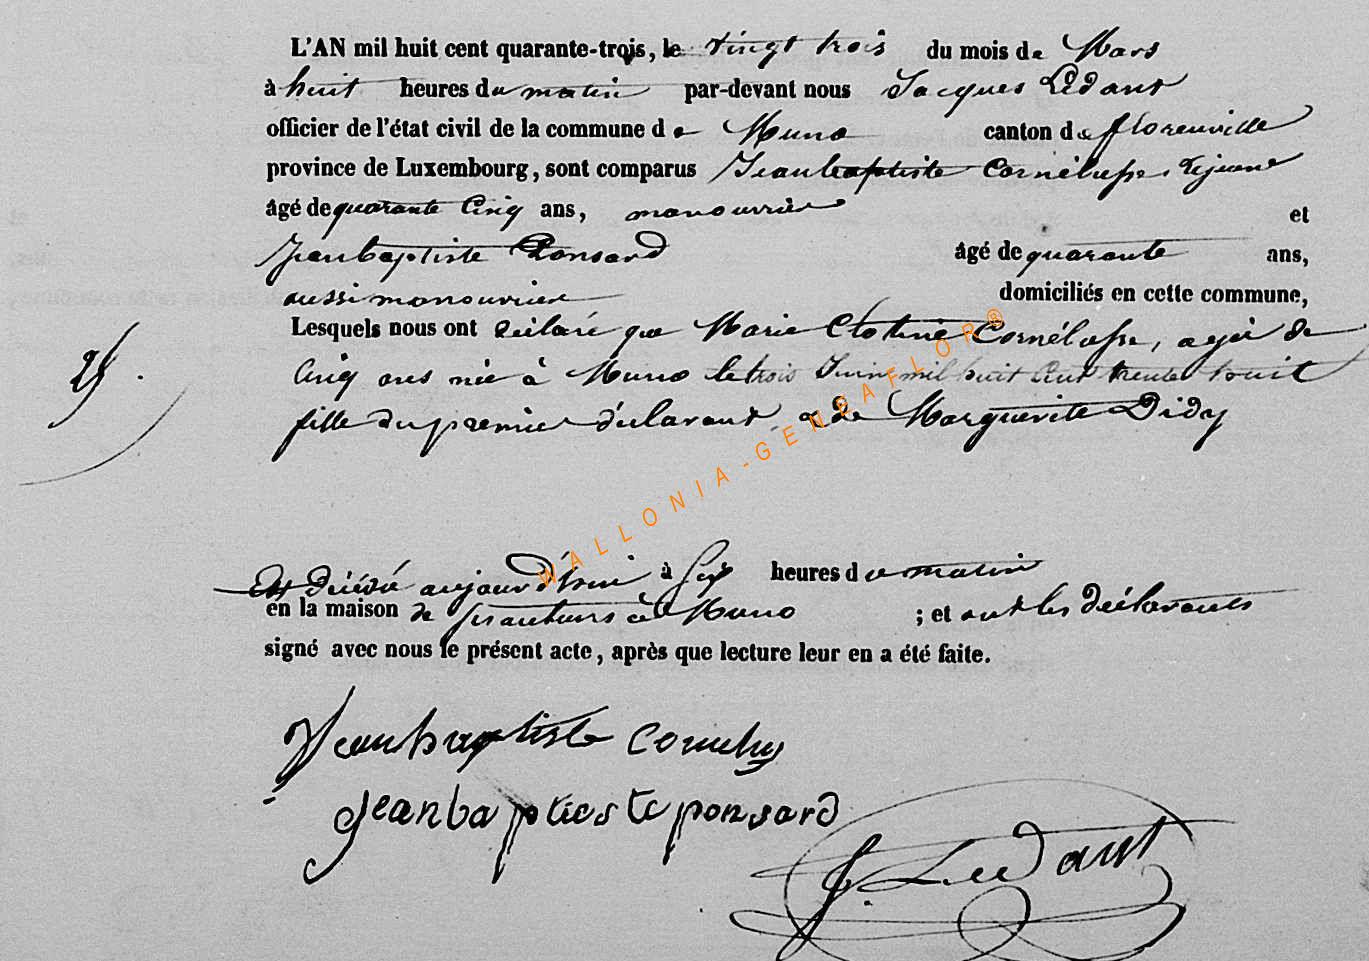 L'AN mil huit cent quarante-trois, le vingt trois du mois de Mars
à huit heures du matin par-devant nous Jacques Lédant
officier de l'état civil de la commune de Muno canton de florenville
province de Luxembourg, sont comparus Jeanbaptiste Cornélusse Lejeune
âgé de quarante Cinq ans, manouvrier et
Jeanbaptiste Ponsard âgé de quarante ans,
aussi manouvrier domiciliés en cette commune,
Lesquels nous ont déclaré que Marie Clotine Cornélusse, agée de
Cinq ans née à Muno le trois Juin mil huit Cent trente huit
25
fille du premier déclarant & de Marguerite Didy
Est décédé aujourd'hui à six heures du matin
en la maison de à Muno ; et ont les déclarants
signé avec nous le présent acte, après que lecture leur en a été faite.
Jeanbaptiste Cornelus
jeanbaptieste ponsard
J. Ledant
WALLONIA-GENEAFLOR®